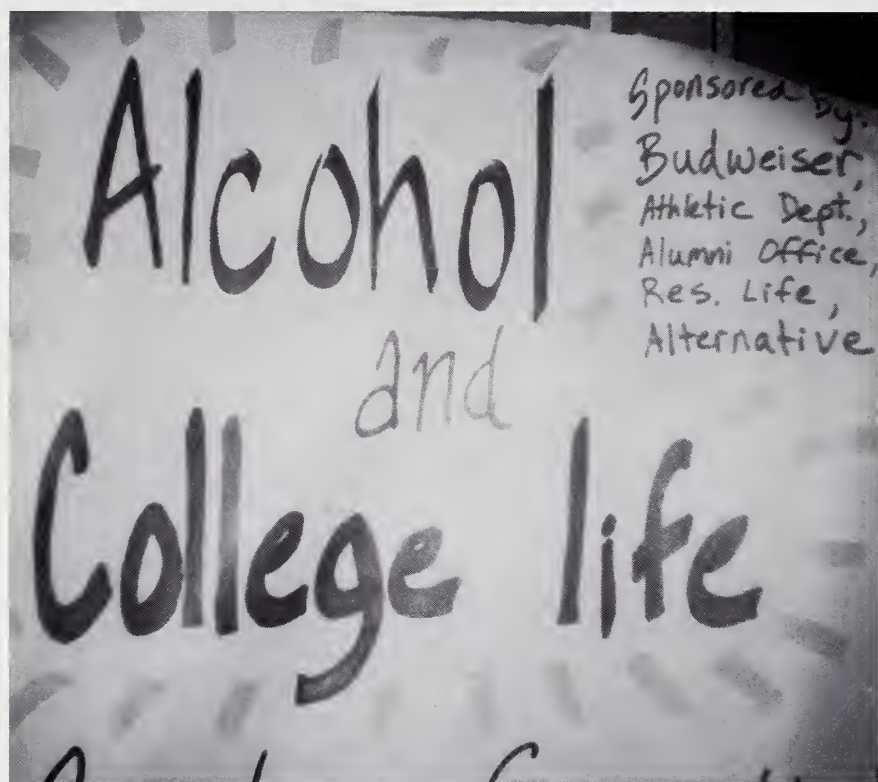 Alcohol
and
College life
Sponsored By:
Budweiser,
Athletic Dept.,
Alumni Office,
Res. Life,
Alternative